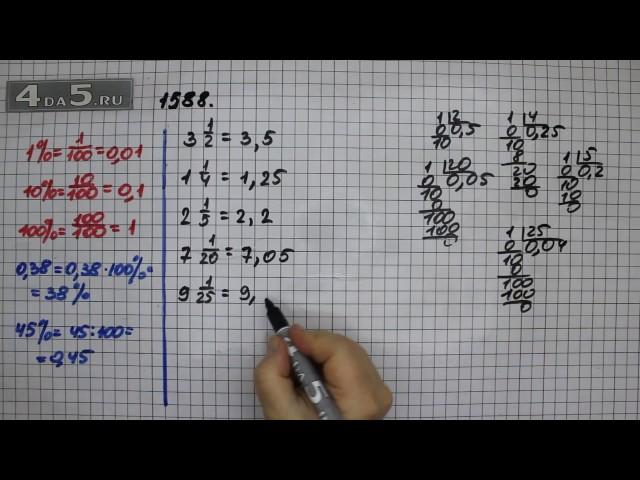 4DA5.RU
1588.
1% = 1/100 = 0,01
10% = 10/100 = 0,1
100% = 100/100 = 1
0,38 = 0,38 · 100% =
= 38%
45% = 45 : 100 =
= 0,45
3 1/2 = 3,5
1 1/4 = 1,25
2 1/5 = 2,2
7 1/20 = 7,05
9 1/25 = 9,
1 2
0 0,5
10
1 4
0 0,25
10
8
20
20
0
1 5
0 0,2
10
10
0
1 20
0 0,05
10
0
100
100
0
1 25
0 0,04
10
0
100
100
0
4 DA 5